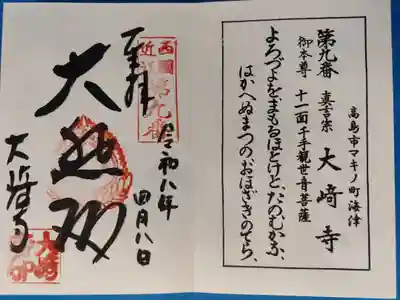 高島市マキノ町海津
第九番 真言宗 大﨑寺
御本尊 十一面千手観世音菩薩
よろづよをまもるほとけと、たのむかふ、
はかへぬまつのおほざきのてら、
令和八年四月八日
西國
近江
第九番
奉拝
大悲殿
大﨑寺